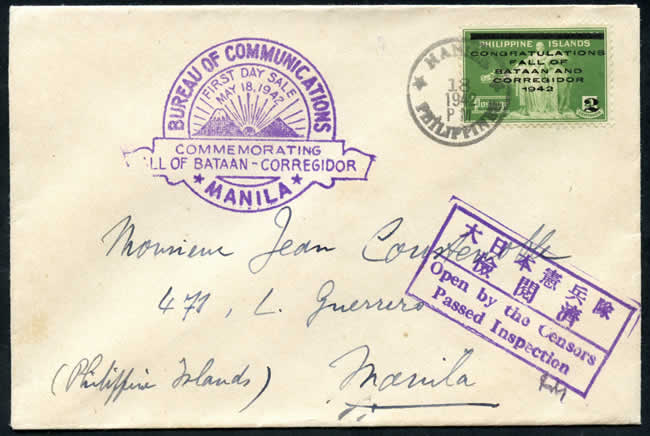 BUREAU OF COMMUNICATIONS
FIRST DAY SALE
MAY 18, 1942
COMMEMORATING
ALL OF BATAAN - CORREGIDOR
MANILA
PHILIPPINE
18
PHILIPPINE ISLANDS
CONGRATULATIONS
FALL OF
BATAAN AND
CORREGIDOR
1942
Postage
2
Monsieur Jean
L. Guerrero
(Philippine Islands)
Manila
大日本憲兵隊
檢閲濟
Open by the Censors
Passed Inspection